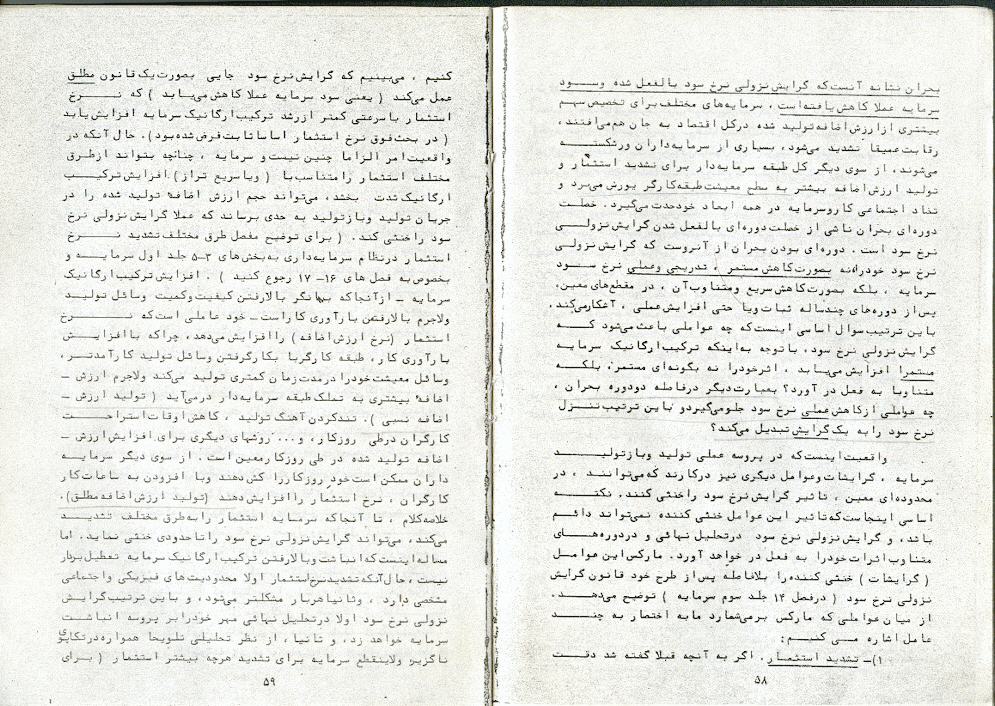 بحران نشانه آنست‌که گرایش نزولی نرخ سود بالفعل شده وسود
سرمایه عملا کاهش یافته‌است ، سرمایه‌های مختلف برای تخصیص سهم
بیشتری از ارزش اضافه تولید شده درکل اقتصاد به جان هم می‌افتند ،
رقابت عمیقا تشدید می‌شود، بسیاری از سرمایه‌داران ورشکسته
می‌شوند، از سوی دیگر کل طبقه سرمایه‌دار برای تشدید استثمار و
تولید ارزش اضافه بیشتر به سطح معیشت طبقه کارگر یورش می‌برد و
تضاد اجتماعی کار و سرمایه در همه ابعاد خود حدت می‌گیرد. خصلت
دوره‌ای بحران ناشی از خصلت دوره‌ای بالفعل شدن گرایش نزولی
نرخ سود است . دوره‌ای بودن بحران از آنروست که گرایش نزولی
نرخ سود خود را نه بصورت کاهش مستمر ، تدریجی وعملی نرخ سود
سرمایه ، بلکه بصورت کاهش سریع ومتناوب آن ، در مقطع‌های معین،
پس از دوره‌های چندساله ثبات ویا حتی افزایش عملی ، آشکار می‌کند.
باین ترتیب سوال اساسی اینست که چه عواملی باعث می‌شود که
گرایش نزولی نرخ سود، با توجه به اینکه ترکیب ارگانیک سرمایه
مستمرا افزایش می‌یابد ، اثر خود را نه بگونه‌ای مستمر، بلکه
متناوبا به فعل در آورد؟ بعبارت دیگر در فاصله دو دوره بحران ،
چه عواملی از کاهش عملی نرخ سود جلو می‌گیرد و باین ترتیب تنزل
نرخ سود را به یک گرایش تبدیل می‌کند؟
واقعیت اینست که در پروسه عملی تولید وبازتولید
سرمایه ، گرایشات وعوامل دیگری نیز درکارند که می‌توانند ، در
محدوده‌ای معین ، تاثیر گرایش نرخ سود را خنثی کنند. نکته
اساسی اینجاست که تاثیر این عوامل خنثی کننده نمی‌تواند دائم
باشد، و گرایش نزولی نرخ سود درتحلیل نهائی و در دوره‌های
متناوب اثرات خود را به فعل در خواهد آورد. مارکس این عوامل
( گرایشات ) خنثی کننده را بلافاصله پس از طرح خود قانون گرایش
نزولی نرخ سود ( درفصل ۱۴ جلد سوم سرمایه ) توضیح می‌دهد.
از میان عواملی که مارکس بر می‌شمارد ما به اختصار به چند
عامل اشاره می کنیم :
۱)ـ تشدید استثمار. اگر به آنچه قبلا گفته شد دقت
۵۸
کنیم ، می‌بینیم که گرایش نرخ سود جایی بصورت یک قانون مطلق
عمل می‌کند ( یعنی سود سرمایه عملا کاهش می‌یابد ) که نرخ
استثمار با سرعتی کمتر از رشد ترکیب ارگانیک سرمایه افزایش یابد
( در بحث فوق نرخ استثمار اساسا ثابت فرض شده بود). حال آنکه در
واقعیت امر الزاما چنین نیست و سرمایه ، چنانچه بتواند از طرق
مختلف استثمار را متناسب با ( ویا سریع تر از) افزایش ترکیب
ارگانیک شدت بخشد، می‌تواند حجم ارزش اضافه تولید شده را در
جریان تولید وبازتولید به حدی برساند که عملا گرایش نزولی نرخ
سود را خنثی کند. ( برای توضیح مفصل طرق مختلف تشدید نرخ
استثمار درنظام سرمایه‌داری به بخش‌های ۳-۵ جلد اول سرمایه و
بخصوص به فصل های ۱۶- ۱۷ رجوع کنید ) . افزایش ترکیب ارگانیک
سرمایه ـ از آنجا که بیانگر بالا رفتن کیفیت وکمیت وسائل تولید
ولاجرم بالا رفتن بارآوری کار است ـ خود عاملی است که نرخ
استثمار (نرخ ارزش اضافه ) را افزایش می‌دهد، چرا که با افزایش
بارآوری کار، طبقه کارگر با بکار گرفتن وسائل تولید کارآمدتر،
وسائل معیشت خود را درمدت زمان کمتری تولید می‌کند ولاجرم ارزش ـ
اضافه بیشتری به تملک طبقه سرمایه‌دار در می‌آید ( تولید ارزش ـ
اضافه نسبی ). تندکردن آهنگ تولید ، کاهش اوقات استراحت
کارگران درطی روزکار، و... روشهای دیگری برای افزایش ارزش ـ
اضافه تولید شده در طی روزکار معین است . از سوی دیگر سرمایه
داران ممکن است خود روزکار را کش دهند ویا افزودن به ساعات کار
کارگران ، نرخ استثمار را افزایش دهند (تولید ارزش اضافه مطلق).
خلاصه کلام ، تا آنجا که سرمایه استثمار را به طرق مختلف تشدید
می‌کند، می‌تواند گرایش نزولی نرخ سود را تا حدودی خنثی نماید. اما
مساله اینست که انباشت وبالا رفتن ترکیب ارگانیک سرمایه تعطیل بردار
نیست ، حال آنکه تشدید نرخ استثمار اولا محدودیت‌های فیزیکی واجتماعی
مشخصی دارد ، وثانیا هر بار مشکلتر می‌شود، و باین ترتیب گرایش
نزولی نرخ سود اولا درتحلیل نهائی مهر خود را بر پروسه انباشت
سرمایه خواهد زد، و ثانیا ، از نظر تحلیلی تلویحا همواره در تکاپوی
ناگزیر ولاینقطع سرمایه برای تشدید هرچه بیشتر استثمار ( برای
۵۹